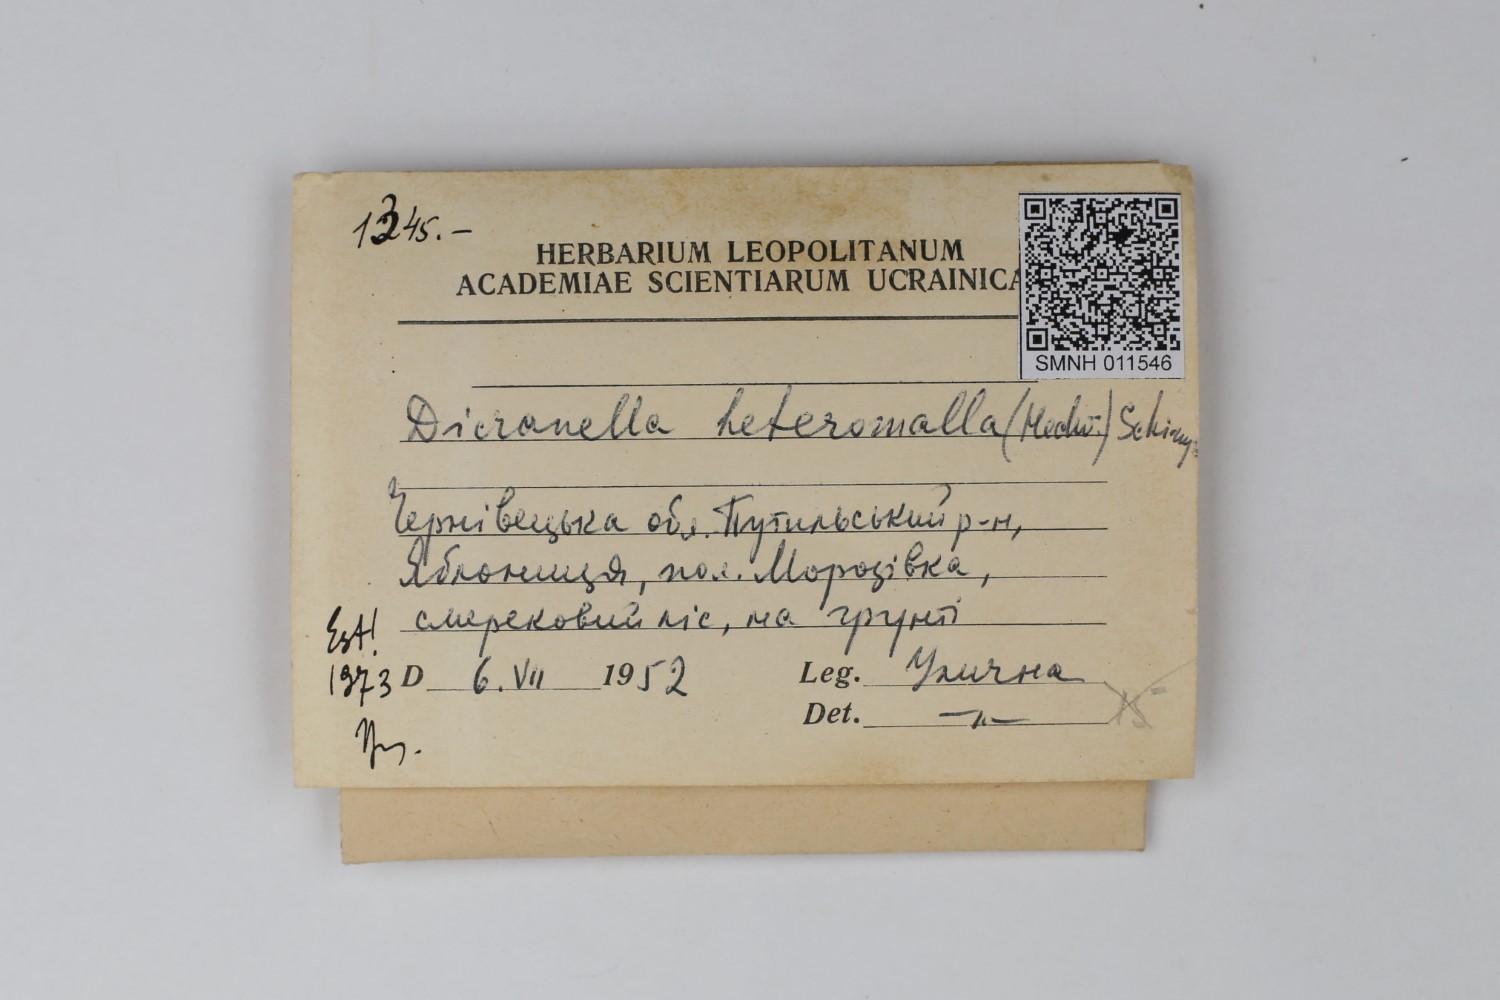 1345.-
HERBARIUM LEOPOLITANUM
ACADEMIAE SCIENTIARUM UCRAINICA
SMNH 011546
Dicranella heteromalla (Hedw.) Schimp.
Чернівецька обл. Путильський р-н,
Яблониця, пол. Морозівка,
смерековий ліс, на грунті
Est!
1973
D 6. VII 1952
Leg. Улична
Det. —"—
15